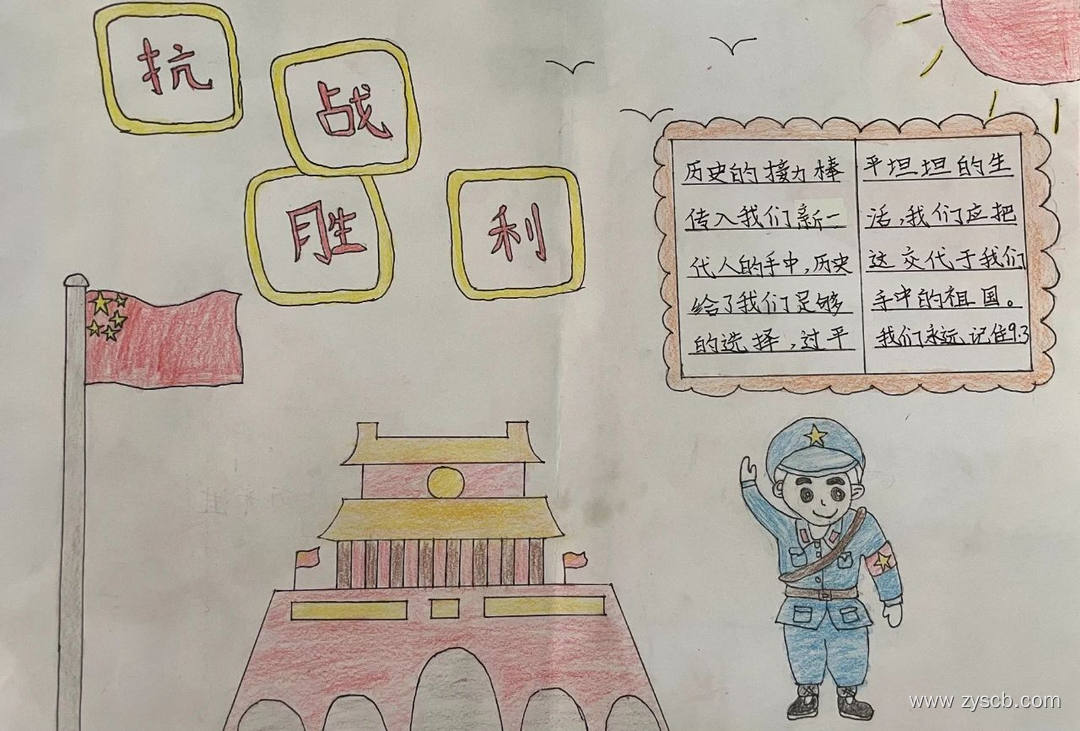 抗
战
胜
利
历史的接力棒
传入我们新一
代人的手中,历史
给了我们足够
的选择,过平
平坦坦的生
活,我们应把
这交代于我们
手中的祖国。
我们永远记住9.3
www.zyscb.com